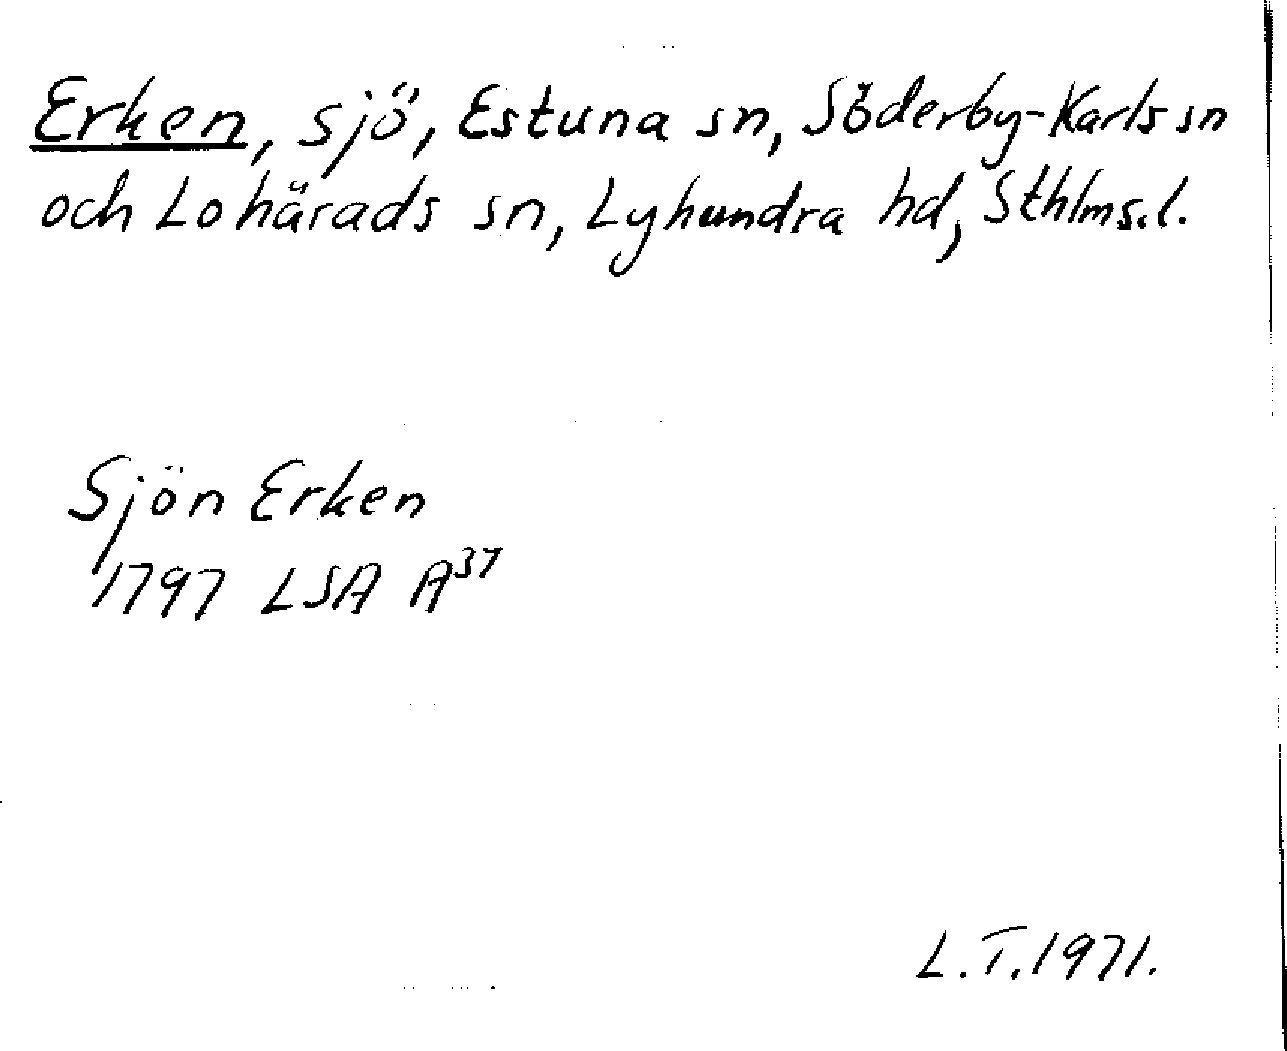 Erken, sjö, Estuna sn, Söderby-Karls sn
och Lohärads sn, Lyhundra hd, Sthlms.l.
Sjön Erken
1797 LSA A³⁷
L.T.1971.